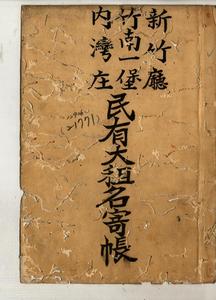 新竹廳
竹南一堡
內灣庄
民有大租名寄帳